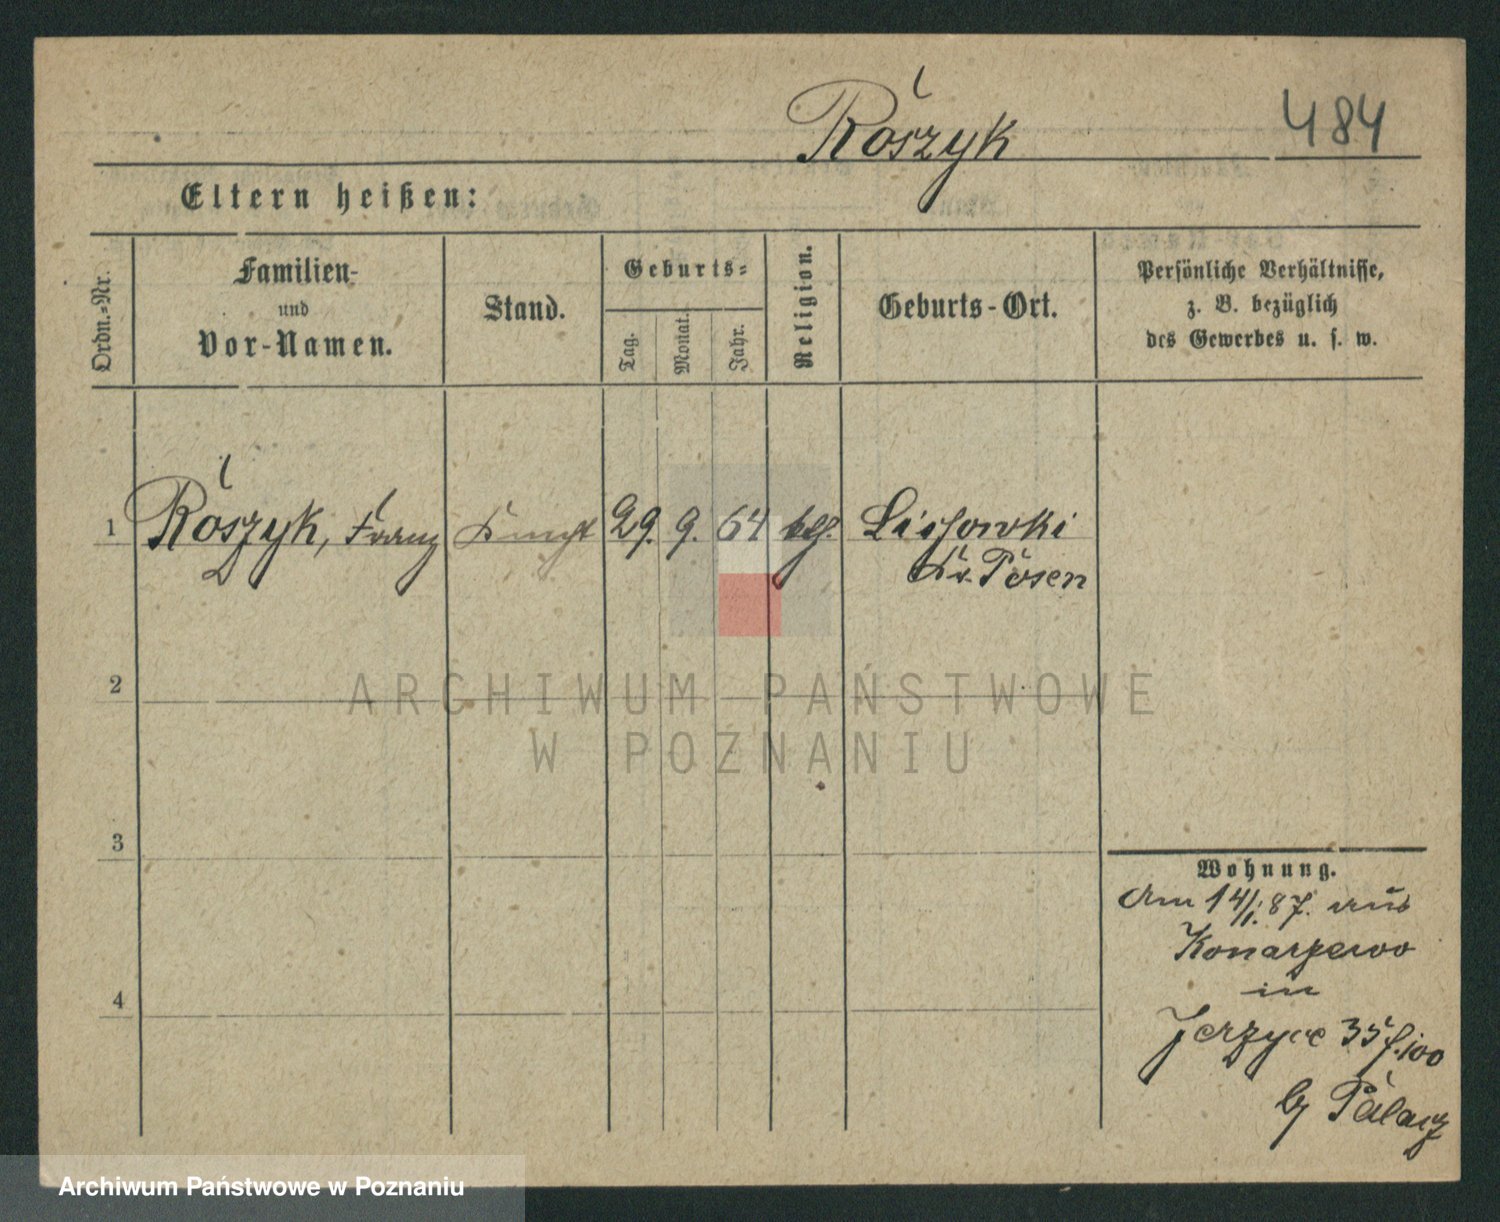 Roszyk
484
Eltern heißen:
Ordn.-Nr.
Familien-
und
Vor-Namen.
Stand.
Geburts-
Tag.
Monat.
Jahr.
Religion.
Geburts-Ort.
Persönliche Verhältnisse,
z. B. bezüglich
des Gewerbes u. s. w.
1 Roszyk, Franz Knecht 29. 9. 64 kth. Lissowki
Kr. Posen
2
3
4
Wohnung.
Am 14/1. 87. aus
Konarzewo
in
Jerzyce 35
b/ Palacz
ARCHIWUM PAŃSTWOWE
W POZNANIU
Archiwum Państwowe w Poznaniu